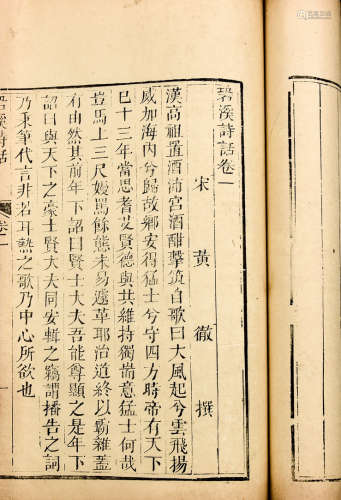 䂬溪詩話卷一
宋 黃 徹 撰
漢高祖置酒沛宮酒酣擊筑自歌曰大風起兮雲飛揚
威加海內兮歸故鄉安得猛士兮守四方時帝有天下
已十三年當思耆艾賢德與共維持獨耑意猛士何哉
豈馬上三尺嫚罵餘態未易遽革耶治道終以霸雜蓋
有由然其前年下詔曰賢士大夫吾能尊顯之是年下
詔曰與天下之豪士賢大夫同安輯之竊謂播告之詞
乃秉筆代言非若耳熱之歌乃中心所欲也
卷一